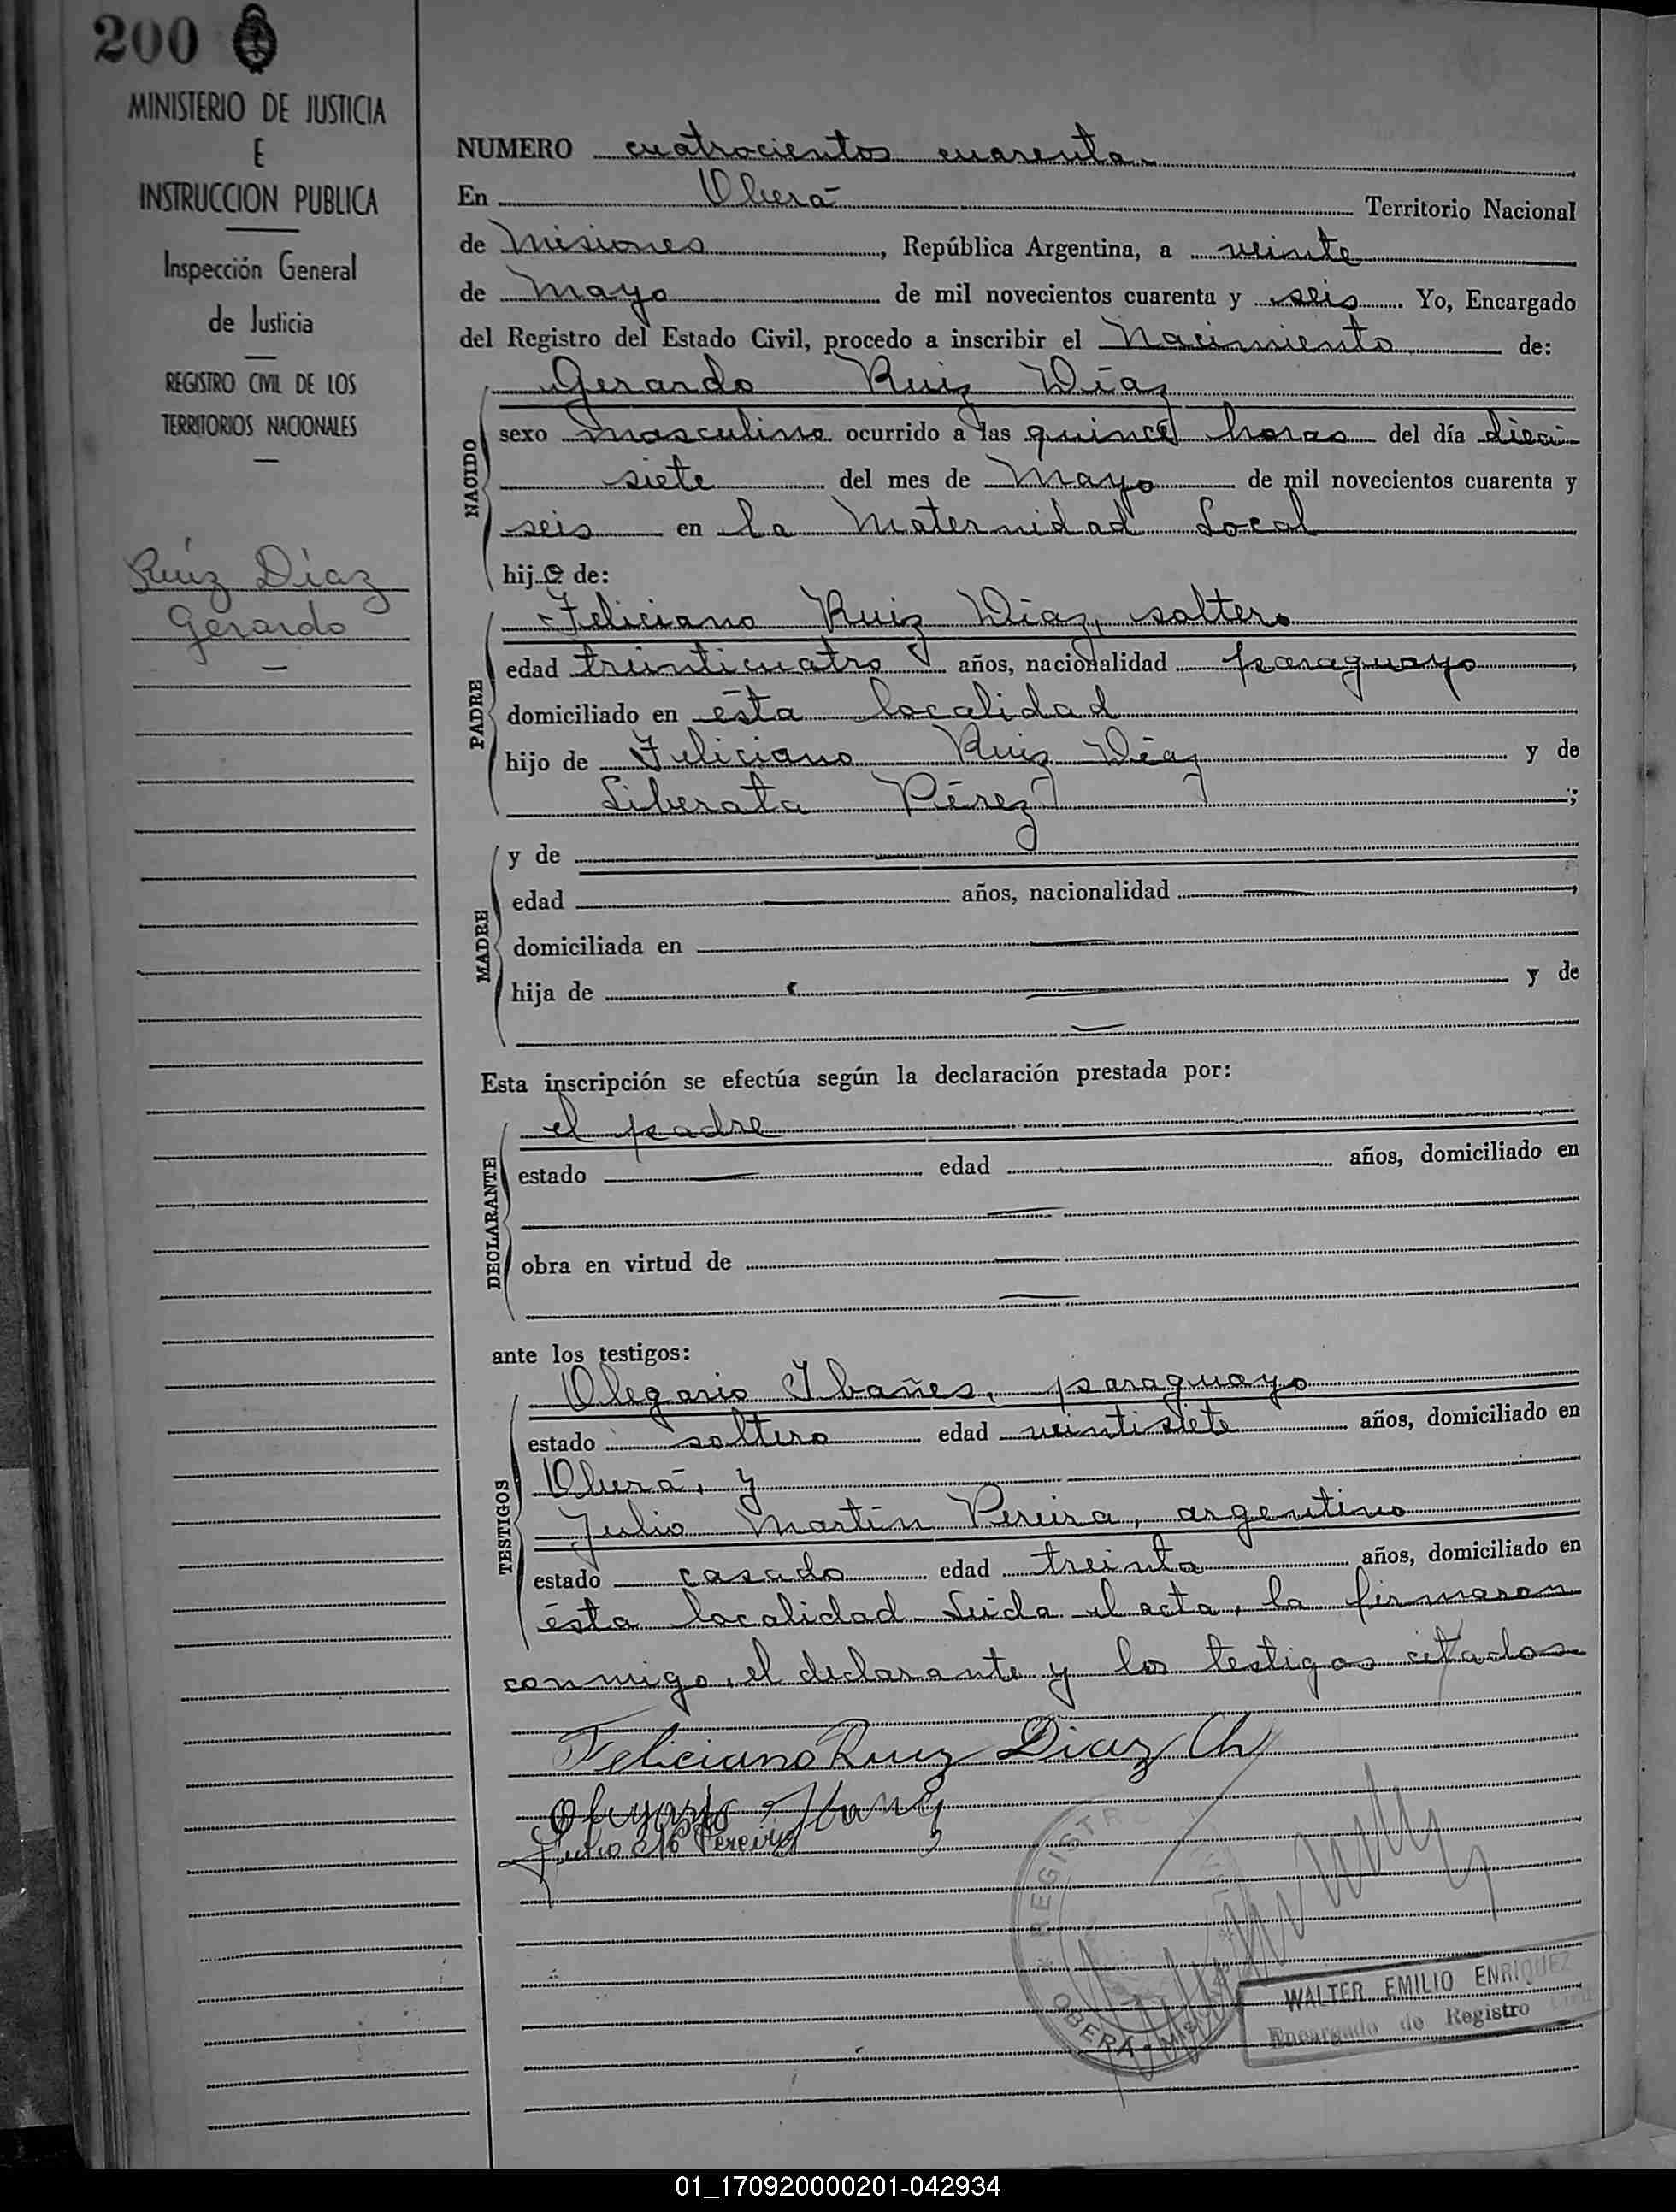 200
MINISTERIO DE JUSTICIA
E
INSTRUCCION PUBLICA
Inspección General
de Justicia
REGISTRO CIVIL DE LOS
TERRITORIOS NACIONALES
Ruíz Díaz
Gerardo
NUMERO cuatrocientos cuarenta
En Oberá Territorio Nacional
de Misiones, República Argentina, a veinte
de Mayo de mil novecientos cuarenta y seis. Yo, Encargado
del Registro del Estado Civil, procedo a inscribir el Nacimiento de:
NACIDO
Gerardo Ruiz Díaz
sexo masculino ocurrido a las quince horas del día dieci-
siete del mes de Mayo de mil novecientos cuarenta y
seis en la Maternidad Local
hijo de:
PADRE
Feliciano Ruiz Díaz, soltero
edad treinticuatro años, nacionalidad paraguayo,
domiciliado en ésta localidad
hijo de Feliciano Ruiz Díaz y de
Liberata Pérez;
MADRE
y de
edad años, nacionalidad ,
domiciliada en
hija de y de
Esta inscripción se efectúa según la declaración prestada por:
DECLARANTE
el padre
estado edad años, domiciliado en
obra en virtud de
ante los testigos:
TESTIGOS
Olegario Ibañes, paraguayo
estado soltero edad veintisiete años, domiciliado en
Oberá, y
Julio Martín Pereira, argentino
estado casado edad treinta años, domiciliado en
ésta localidad Leída el acta, la firmaron
conmigo, el declarante y los testigos citados
Feliciano Ruiz Diaz Ch
Julio M Pereira
REGISTR
OBERÁ - MISI
WALTER EMILIO ENRIQUEZ
Encargado de Registro Civil
01_170920000201-042934